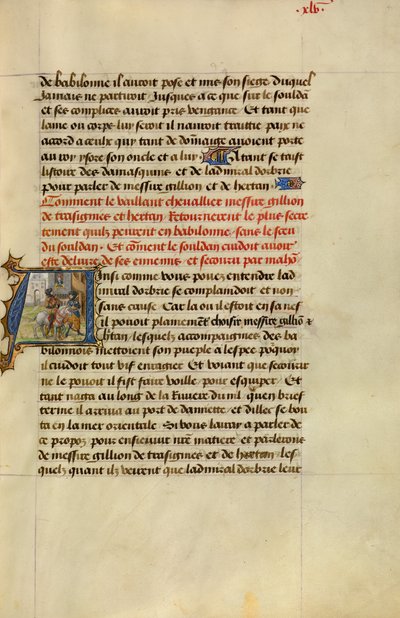 .xlv.
de babilonne il auroit pose et mis son siege duquel
Jamais ne partiroit Jusques a ce que sur le souldā
et ses complices auroit pris vengance Et tant que
lame ou corps luy seroit il nauroit traittie paix ne
accord a ceulx quy tant de dōmaige auoient porte
au roy ysore son oncle et a luy Atant se taist
listoire des damasquins et de ladmiral dorbrie
pour parler de messire gillion et de hertan
Comment le vaillant cheuallier messire gillion
de trasignies et hertan Retournerent le plus secre
tement quilz peurent en babilonne sans le sceu
du souldan Et cōment le souldan cuidoit auoir
este deliure de ses ennemis et secouru par mahō
Ainsi comme vous pouez entendre lad
miral dorbrie se complaindoit et non
sans cause Car la ou il estoit en sa nef
il pouoit plainemēt choisir messire gillion et
htan lesquelz accompaignies des ba
bilonnois mettoient son pueple a lespee pourquoy
il cuidoit tout vif enragier Et voiant que secourir
ne le pouoit il fist faire voille pour esquiper Et
tant naga au long de la Riuiere du nil quen brief
terme il arriua au port de damiette et dillec se bou
ta en la mer orientale Si vous lairay a parler de
ce propoz pour ensieuuir nrē matiere et parlerons
de messire gillion de trasignies et de hertan les
quelz quant ilz veirent que ladmiral dorbrie leur